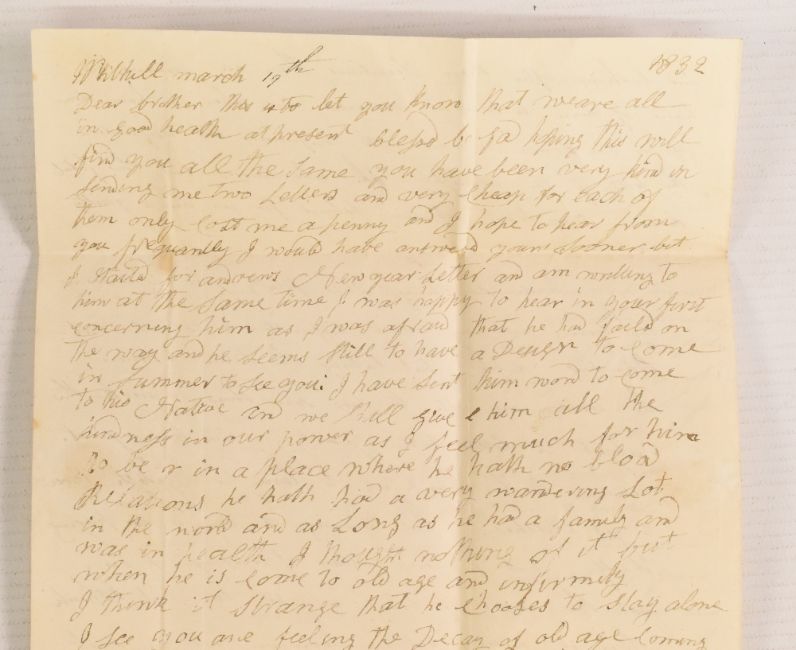 march 19th 1832
Dear brother this is to let you know that we are all
in good health at present blessd be god hping this will
find you all the same you have been very kind in
sending me two Letters and very Cheap for each of
them only Cost me a penny and I hope to hear from
you frequantly I would have answered your sooner but
I staid for andrews Newyear Letter and am writting to
him at the same time I was happy to hear in your first
concerning him as I was afraid that he had faild on
the way and he seems still to have a Design to come
in summer to see you I have sent him word to come
to his Native and we shall give him all the
kindness in our power as I feel much for him
to be in a place where he hath no blood
Relations he hath had a very wandering Lot
in the world and as Long as he had a family and
was in health I thought nothing of it but
when he is come to old age and infirmity
I think it strange that he chooses to stay alone
I see you are feeling the Decay of old age Coming